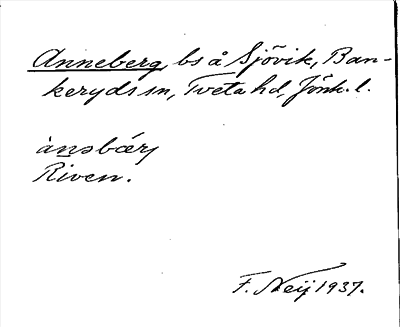 Anneberg, bs å Sjövik, Ban-
keryds sn, Tveta hd, Jönk. l.
ànəbærj
Riven.
F. Neij 1937.